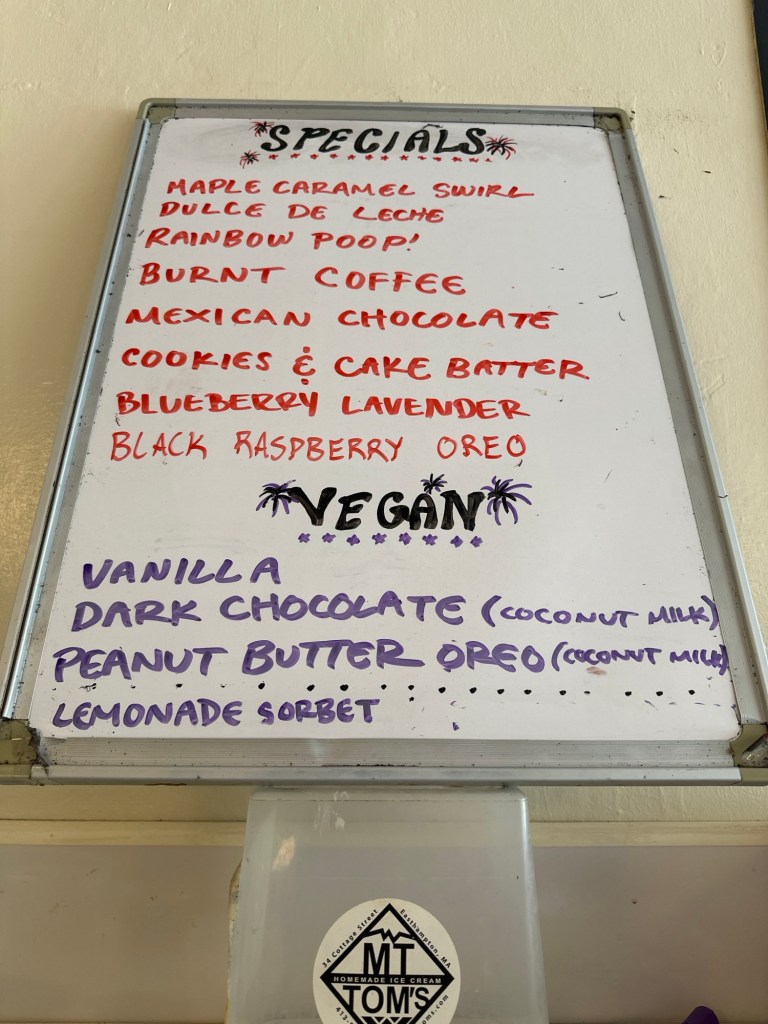 SPECIALS
MAPLE CARAMEL SWIRL
DULCE DE LECHE
RAINBOW POOP!
BURNT COFFEE
MEXICAN CHOCOLATE
COOKIES & CAKE BATTER
BLUEBERRY LAVENDER
BLACK RASPBERRY OREO
VEGAN
VANILLA
DARK CHOCOLATE (COCONUT MILK)
PEANUT BUTTER OREO (COCONUT MILK)
LEMONADE SORBET
34 Cottage Street Easthampton, MA
MT
HOMEMADE ICE CREAM
TOM'S